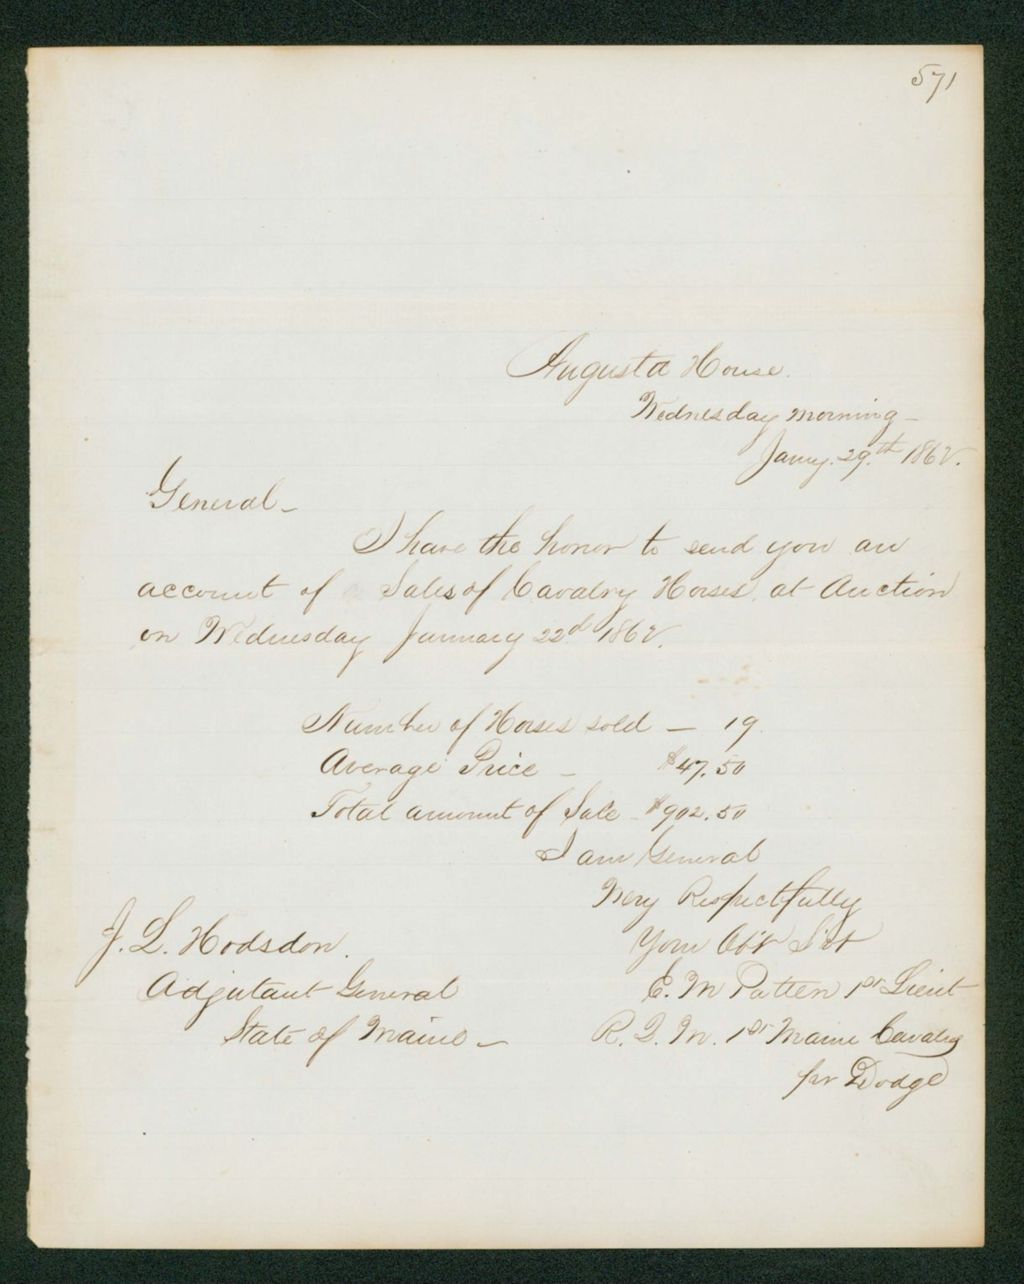 571
Augusta House.
Wednesday morning -
Jany. 29th 1862.
General -
I have the honor to send you an
account of Sales of Cavalry Horses, at Auction
on Wednesday January 22d 1862.
Number of Horses sold - 19.
Average Price - $47.50
Total amount of Sale - $902.50
I am General
Very Respectfully
Your Obt Svt
E. M Patten 1st Lieut
R. Q. M. 1st Maine Cavalry
per Dodge
J. L. Hodsdon.
Adjutant General
State of Maine -